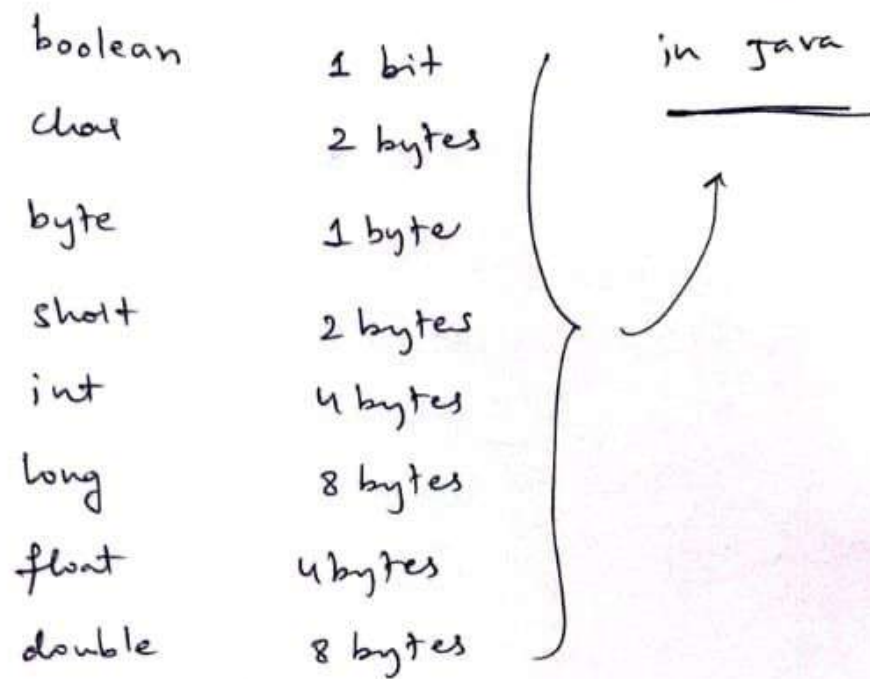 boolean 1 bit in Java
char 2 bytes
byte 1 byte
short 2 bytes
int 4 bytes
long 8 bytes
float 4 bytes
double 8 bytes